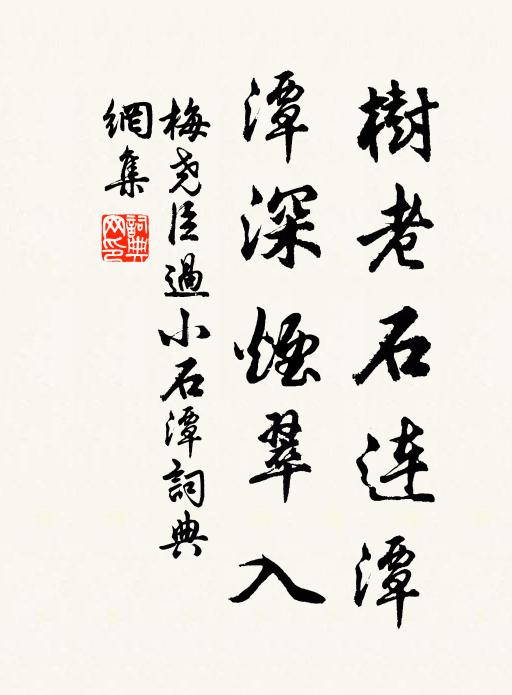 樹老石連潭
潭深煙翠入
梅堯臣過小石潭詞典
網集
詞典
网印